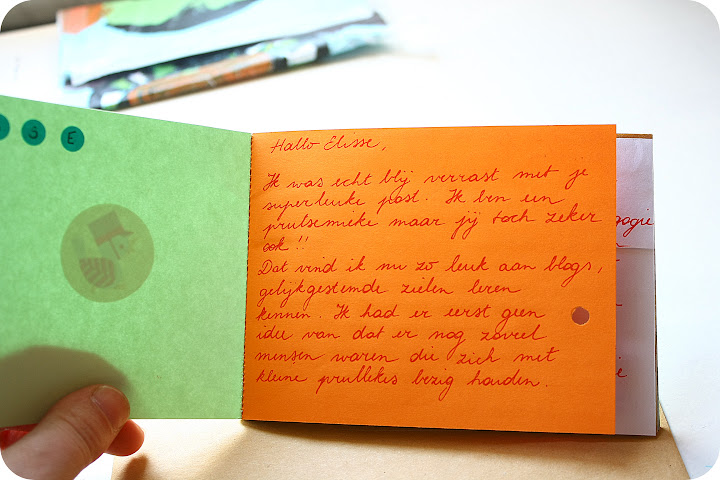 S E
Hallo Elisse,
Ik was echt blij verrast met je
superleuke post. Ik ben een
prutsemieke maar jij toch zeker
ook!!
Dat vind ik nu zo leuk aan blogs,
gelijkgestemde zielen leren
kennen. Ik had er eerst geen
idee van dat er nog zoveel
mensen waren die zich met
kleine prullekes bezig houden.
gogie